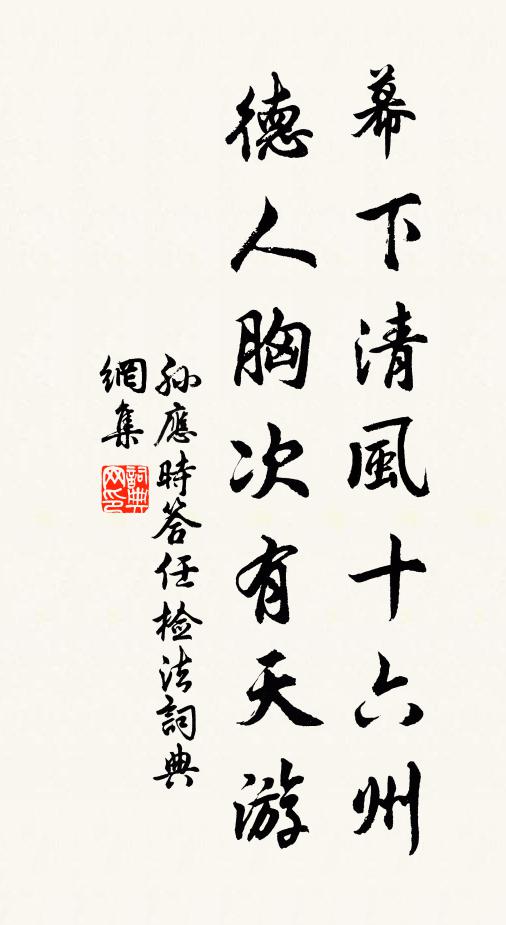 幕下清風十六州
德人胸次有天游
孫應時答任检法詞典
網集
詞典
网印